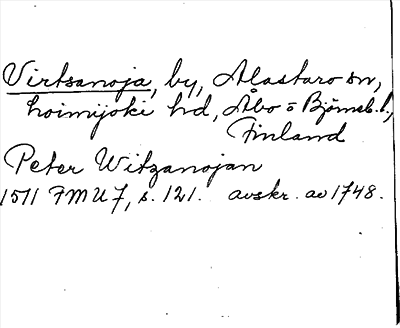 Virtsanoja, by, Alastaro sn,
Loimijoki hd, Åbo o Björneb. l.,
Finland
Peter Witzanojan
1511 FMU 7, s. 121. avskr. av 1748.